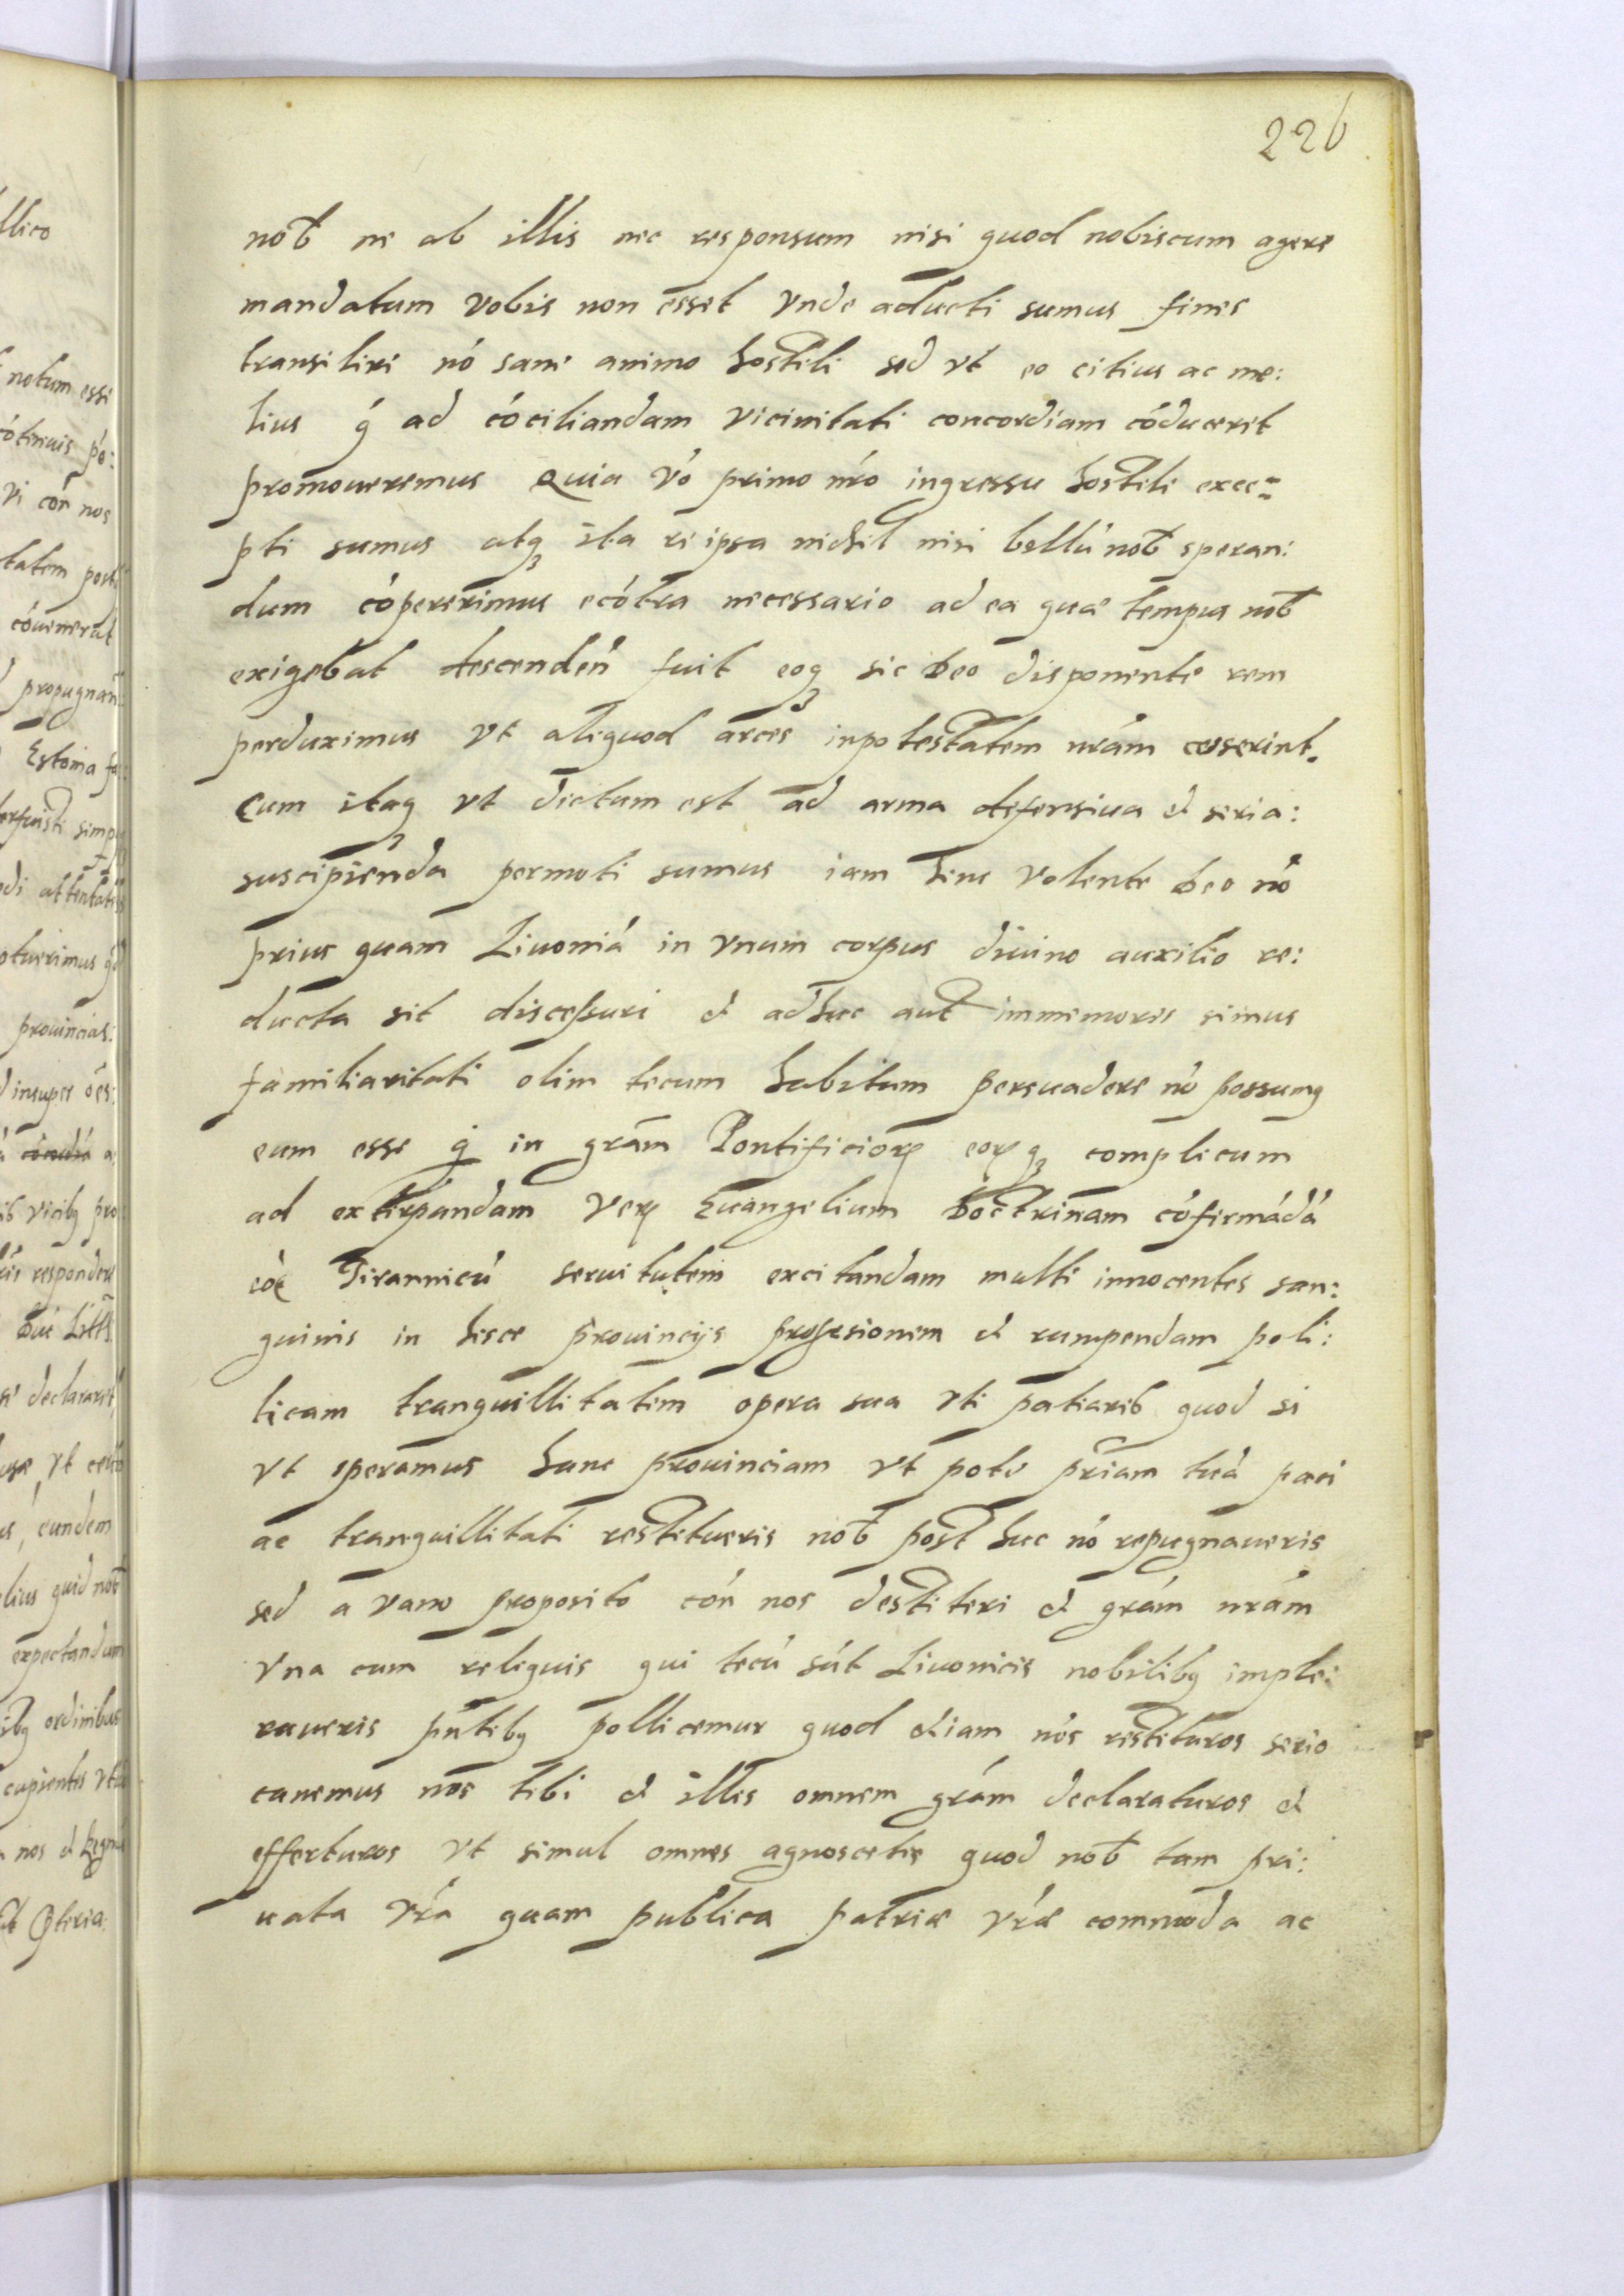 226
nob̃ ne ab illis nec responsum nisi quod nobiscum agere
mandatum vobis non esset vnde aducti sumus fines
transilire nó sane animo hostili sed vt eo citius ac me:
lius q́ ad cóciliandam vicinitati concordiam códuceret
promoueremus Quia vó primo nr̃o ingressu hostili exce=
pti sumus atqꝫ ita re ipsa nichil nisi bellú nob̃ speran:
dum cópererimus ecótra necessario ad ea quæ tempus nob̃
exigebat descendeñ fuit eoqꝫ sic deo disponente rem
perduximus vt aliquod arces inpotestatem nrám cesserint.
Cum itaqꝫ vt dictum est ad arma defensiua et seria:
suscipienda permoti sumus iam hinc volente deo nó
prius quam Liuoniá in vnum corpus diuino auxilio re:
ducta sit discessuri et adhuc aut immemores simus
familiaritati olim tecum habitam persuadere nó possumꝰ
eum esse q́ in grãm Pontificioꝝ eoꝝqꝫ complicum
ad extirpandam veꝝ Euangelium doctrinam cófirmádá
eóꝝ Tirannicú seruitutem excitandam multi innocentes san:
guinis in hisce prouincijs profusionem et rumpendam poli:
ticam tranquillitatem opera sua vti patiarib quod si
vt speramus hanc prouinciam vt pote pr̃iam tuá paci
ac tranquillitati restitueris nob̃ post huc nó repugnaueris
sed a vano proposito cóñ nos destiteri et grám nrám
vna cum reliquis qui tecú sút Liuonicis nobilibꝫ imple:
raueris pñtibꝫ pollicemur quod etiam nós restituros serio
canemus nos tibi et illis omnem grám declaraturos et
efferturos vt simul omnes agnoscetis quod nob̃ tam pri:
uata vr̃á quam publica patriæ vr̃æ commoda ac